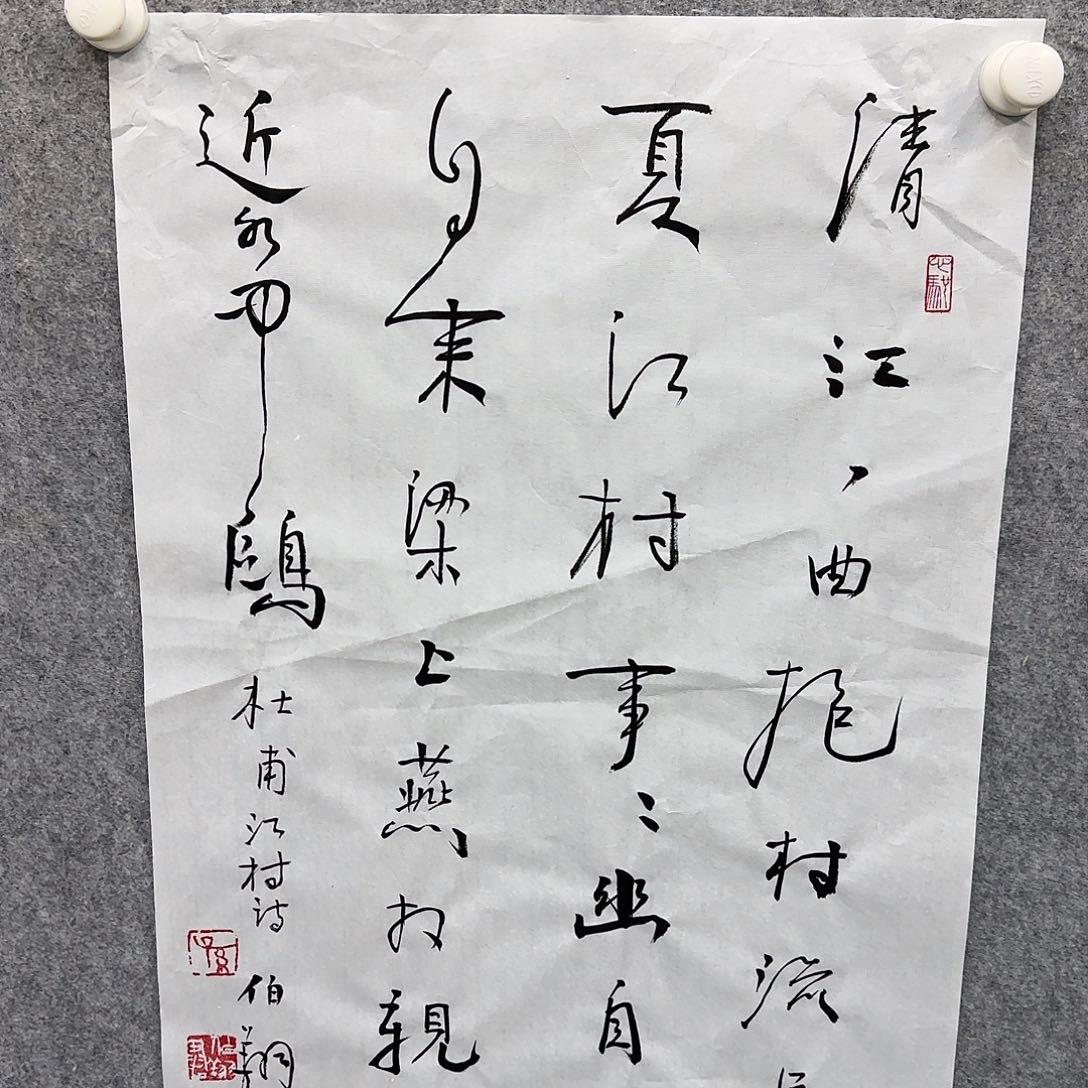 清江一曲抱村流
夏江村事〻幽自
自来梁上燕相親
近水中鷗
杜甫江村詩 伯翔